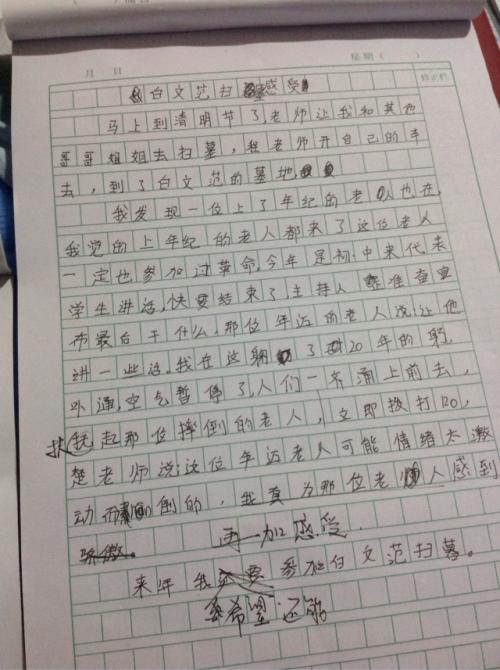 月 日 星期( )
白文范扫墓感受
马上到清明节了,老师让我和其他
哥哥姐姐去扫墓,楚老师开自己的车
去,到了白文范的墓地。
我发现一位上了年纪的老人也在,
我觉的上年纪的老人都来了这位老人
一定也参加过革命,今年是初中来代表
学生讲话,快要结束了,主持人准备宣
布最后干什么,那位年迈的老人说:让他
讲一些话。我在这躺了20年的
外,通,空气暂停了,人们一齐涌上前去,
扶起那位摔倒的老人,立即拨打120,
楚老师说:这位年迈老人可能情绪太激
动而倒的,我真为那位老人感到
骄傲。 再加感受.
来年我还要参加白文范扫墓。
希望还能